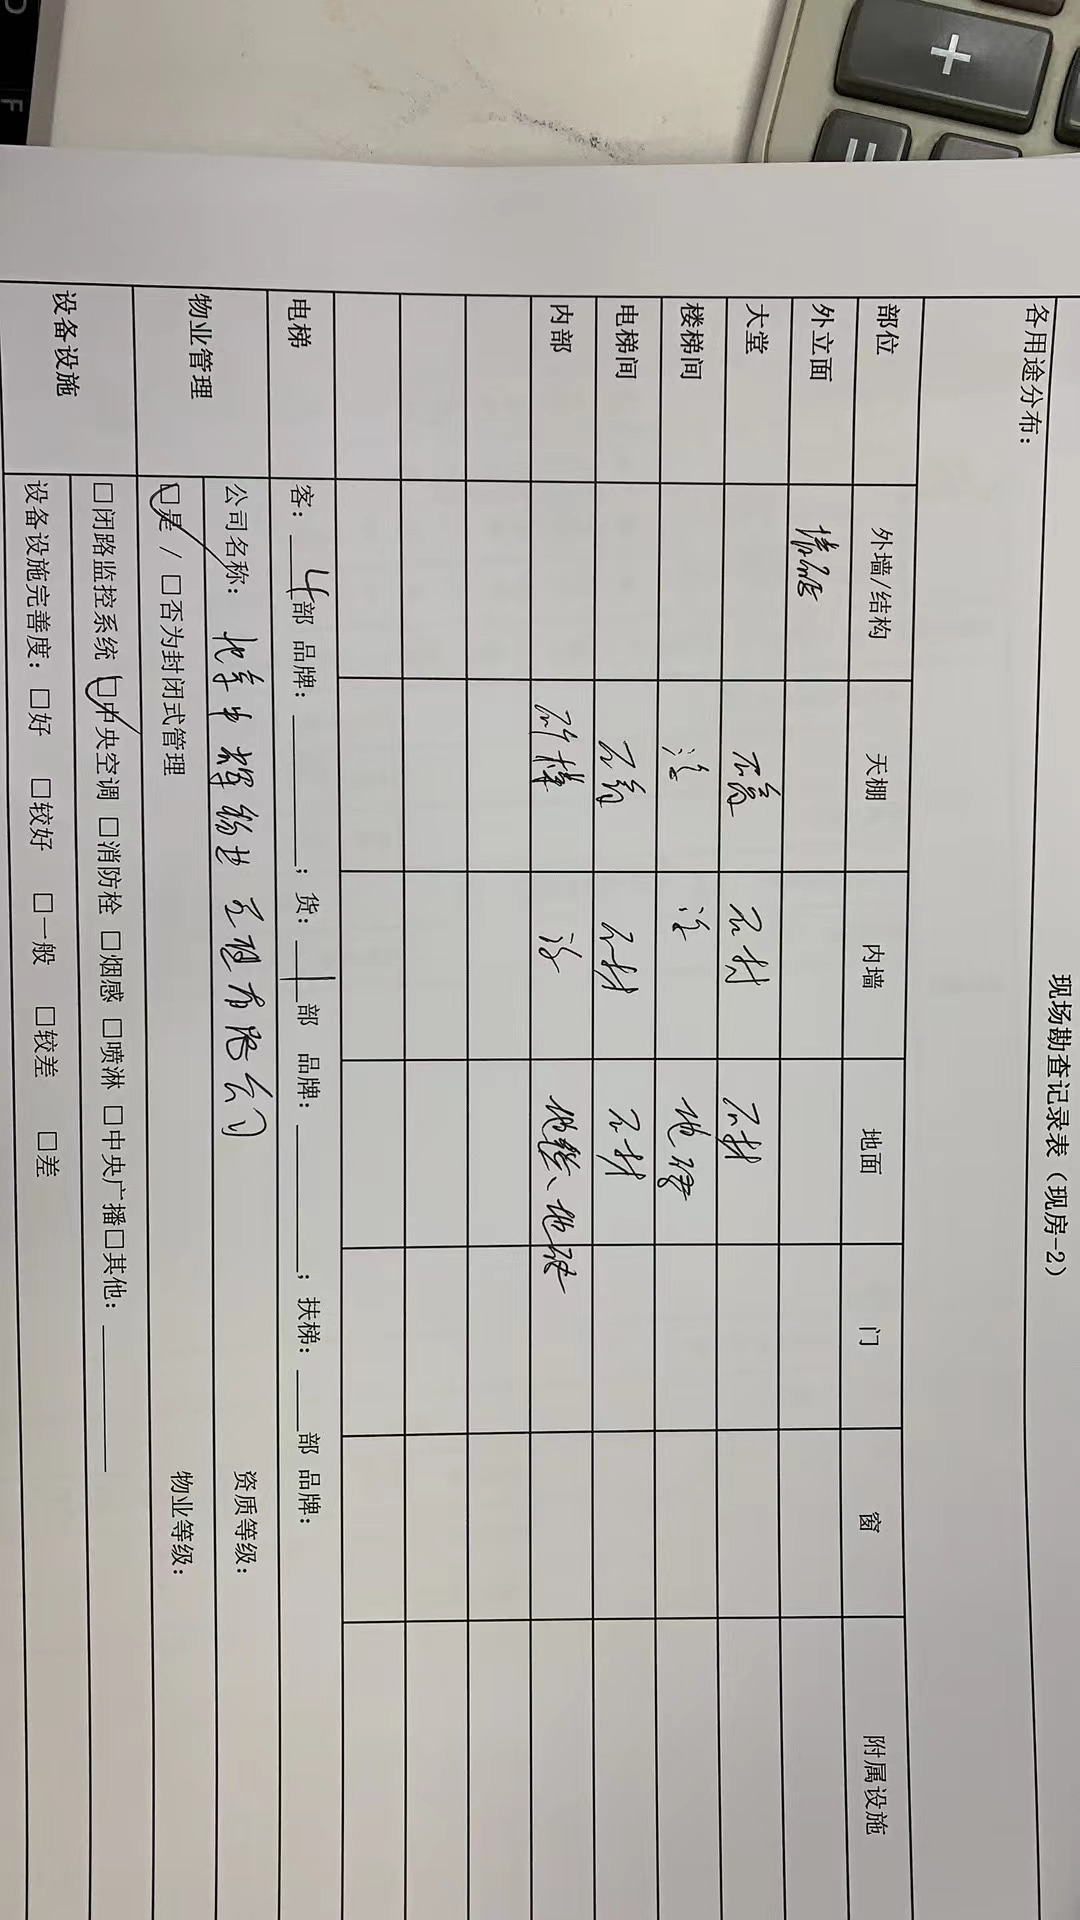 现场勘查记录表（现房-2）
各用途分布：
部位 外墙/结构 天棚 内墙 地面 门 窗 附属设施
外立面
大堂 石膏 石材 石材
楼梯间 涂 涂 地砖
电梯间 石膏 石材 石材
内部 矿棉 涂 地毯、地砖
电梯 客：4部 品牌：；货：1部 品牌：；扶梯：部 品牌：
物业管理 公司名称：物业管理有限公司 资质等级：
□是 / □否为封闭式管理 物业等级：
设备设施 □闭路监控系统 □中央空调 □消防栓 □烟感 □喷淋 □中央广播□其他：
设备设施完善度：□好 □较好 □一般 □较差 □差
+
=
F